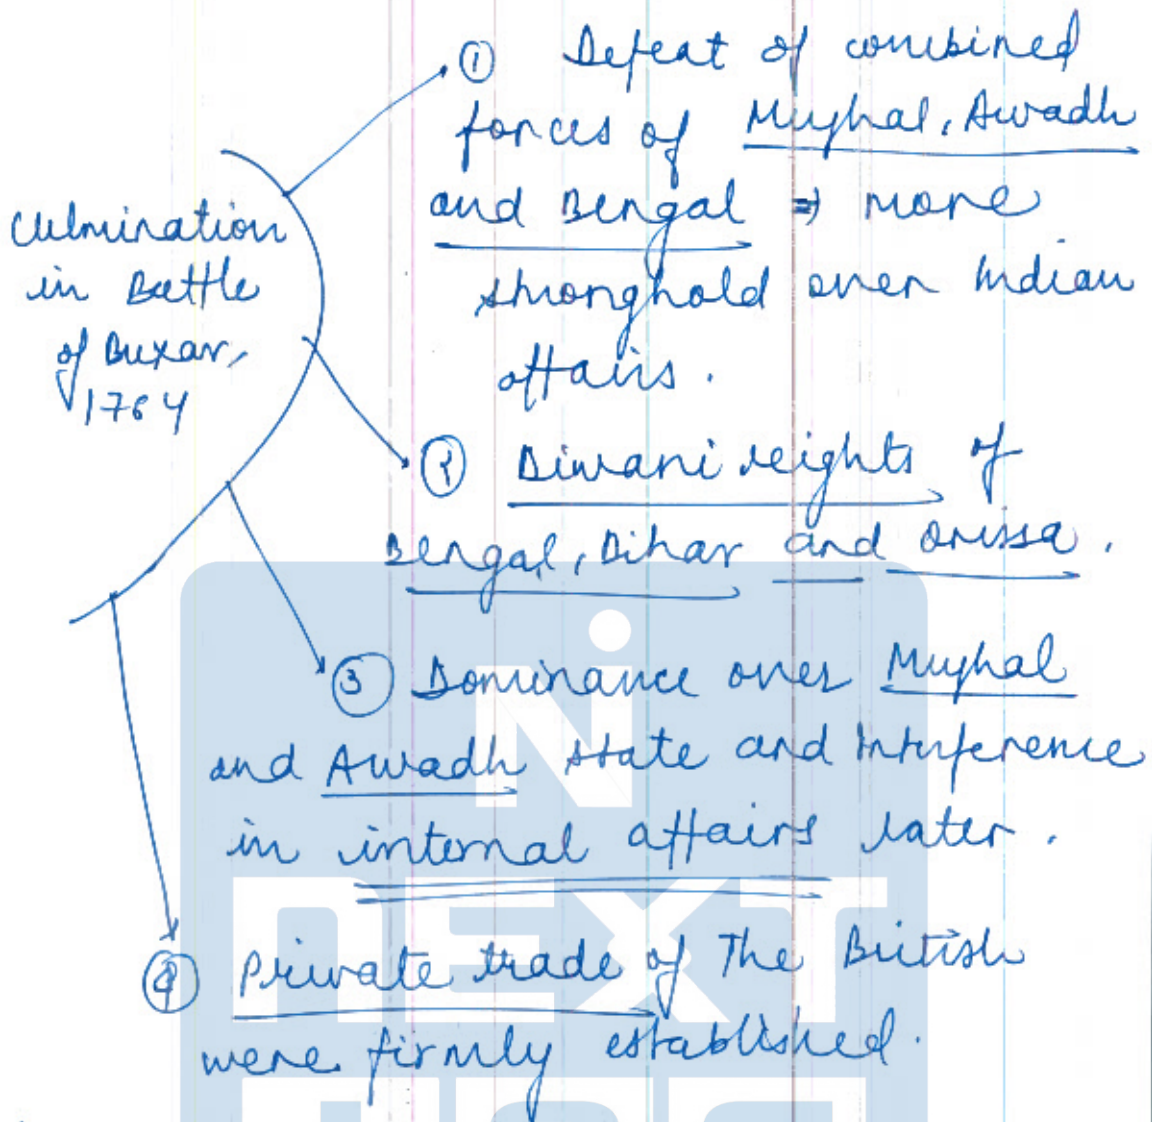 Culmination
in Battle
of Buxar,
1764
① Defeat of combined
forces of Mughal, Awadh
and Bengal ⇒ more
stronghold over Indian
affairs.
② Diwani reights of
Bengal, Bihar and Orissa.
③ Dominance over Mughal
and Awadh state and Interference
in internal affairs later.
④ Private trade of The British
were firmly established.
Ni
NEXT